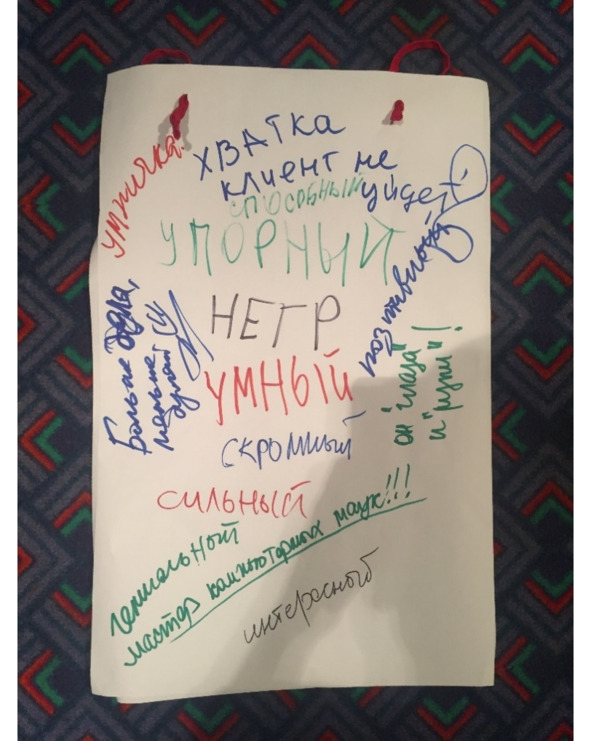 умничка
ХВАТКА
клиент не
уйдет
способный
УПОРНЫЙ
позитивный
НЕГР
Больше дела,
меньше
думай
УМНЫЙ
он "глаза"
и "руки"!
СКРОМНЫЙ
СИЛЬНЫЙ
гениальный
мастер компьютерных наук!!!
интересный